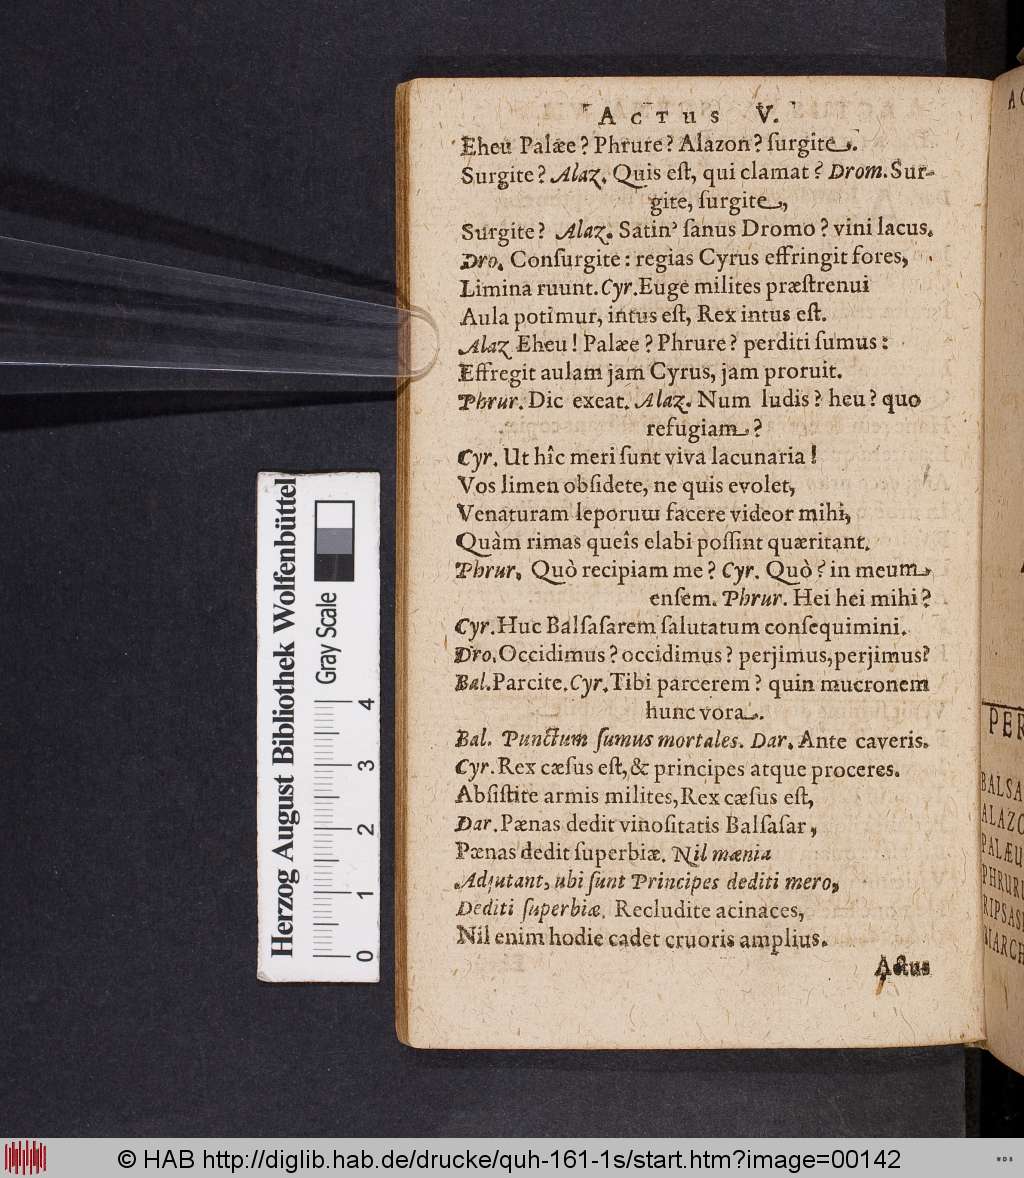 ACTUS V.
Eheu Palæe? Phrure? Alazon? ſurgite.
Surgite? Alaz. Quis eſt, qui clamat? Drom. Sur-
gite, ſurgite,
Surgite? Alaz. Satin' ſanus Dromo? vini lacus.
Dro. Conſurgite: regias Cyrus effringit fores,
Limina ruunt. Cyr. Euge milites præſtrenui
Aula potimur, intus eſt, Rex intus eſt.
Alaz Eheu! Palæe? Phrure? perditi ſumus:
Effregit aulam jam Cyrus, jam proruit.
Phrur. Dic exeat. Alaz. Num ludis? heu? quo
refugiam?
Cyr. Ut hîc meri ſunt viva lacunaria!
Vos limen obſidete, ne quis evolet,
Venaturam leporum facere videor mihi,
Quàm rimas queîs elabi poſſint quæritant.
Phrur. Quò recipiam me? Cyr. Quò? in meum
enſem. Phrur. Hei hei mihi?
Cyr. Huc Balſaſarem ſalutatum conſequimini.
Dro. Occidimus? occidimus? perjimus, perjimus?
Bal. Parcite. Cyr. Tibi parcerem? quin mucronem
hunc vora.
Bal. Punctum ſumus mortales. Dar. Ante caveris.
Cyr. Rex cæſus eſt, & principes atque proceres.
Abſiſtite armis milites, Rex cæſus eſt,
Dar. Pœnas dedit vinoſitatis Balſaſar,
Pœnas dedit ſuperbiæ. Nil mœnia
Adjutant, ubi ſunt Principes dediti mero,
Dediti ſuperbiæ. Recludite acinaces,
Nil enim hodie cadet cruoris amplius.
Actus
PER
BALSA
ALAZO
PALÆU
PHRUR
RIPSAS
Herzog August Bibliothek Wolfenbüttel
Gray Scale
0 1 2 3 4
© HAB http://diglib.hab.de/drucke/quh-161-1s/start.htm?image=00142